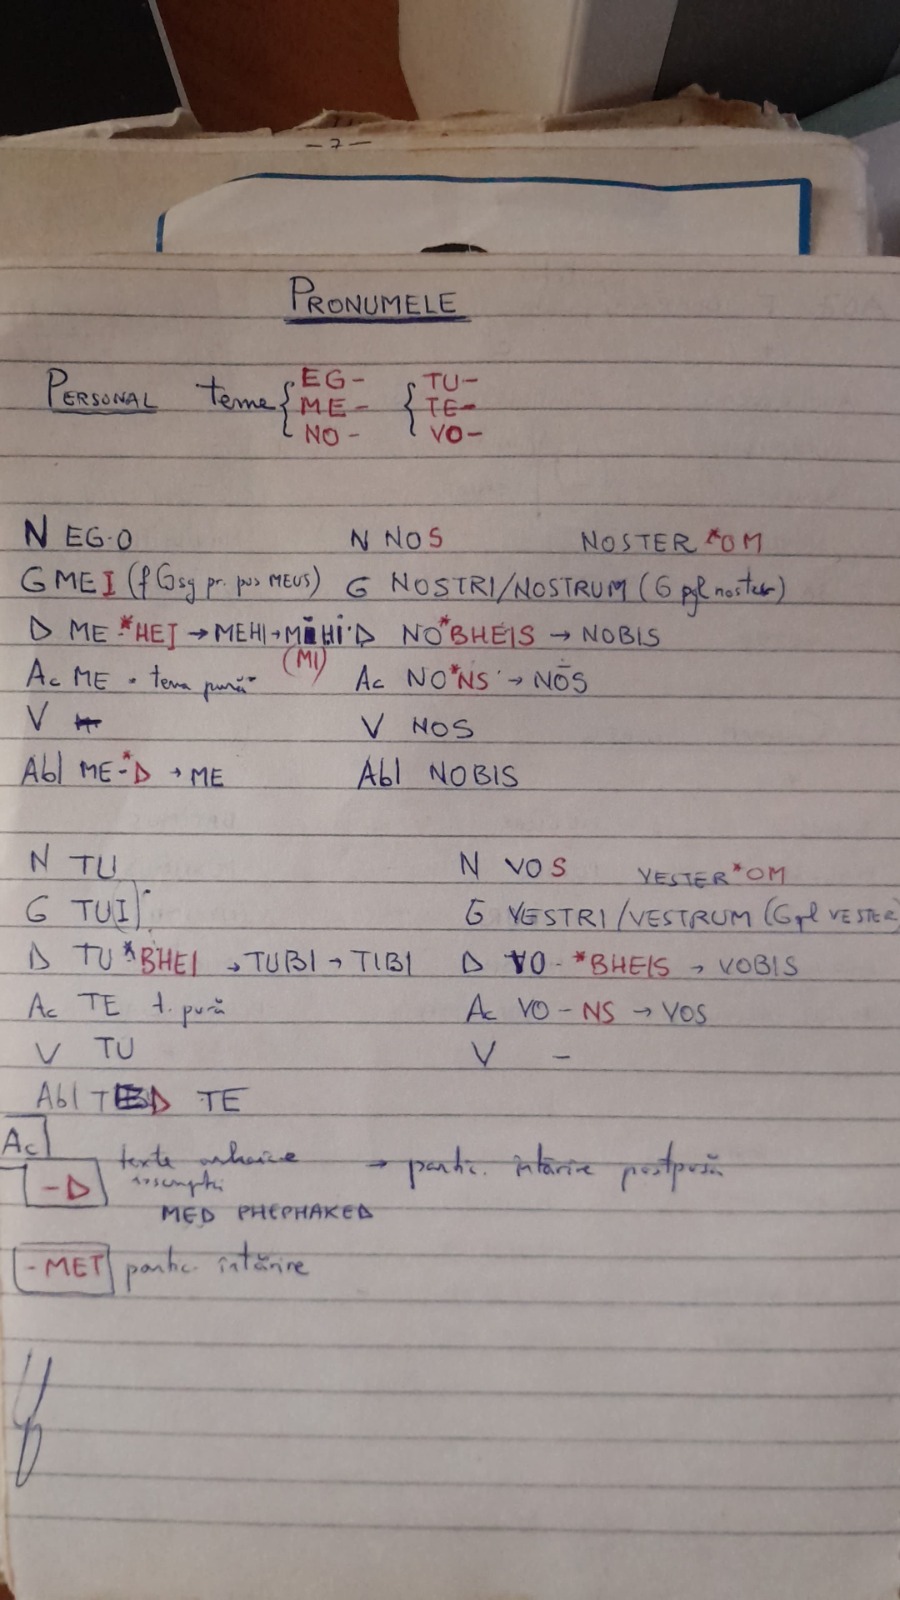 - 7 -
PRONUMELE
PERSONAL teme { EG- { TU-
ME- TE-
NO- VO-
N EG·O N NOS NOSTER *OM
G MEI (f Gsg pr. pos MEUS) G NOSTRI/NOSTRUM (G pl noster)
D ME-*HEI → MEHI → MIHI D NO*BHEIS → NOBIS
(MI)
Ac ME - tema pură Ac NO*NS → NŌS
V V NOS
Abl ME-*D → ME Abl NOBIS
N TU N VOS VESTER*OM
G TU(I) G VESTRI/VESTRUM (G pl VESTER
D TU*BHEI → TUBI → TIBI D VO-*BHEIS → VOBIS
Ac TE t. pură Ac VO-NS → VOS
V TU V -
Abl TED TE
Ac
texte arhaice → partic. întărire postpusă
-D
MED PHEPHAKED
-MET partic. întărire